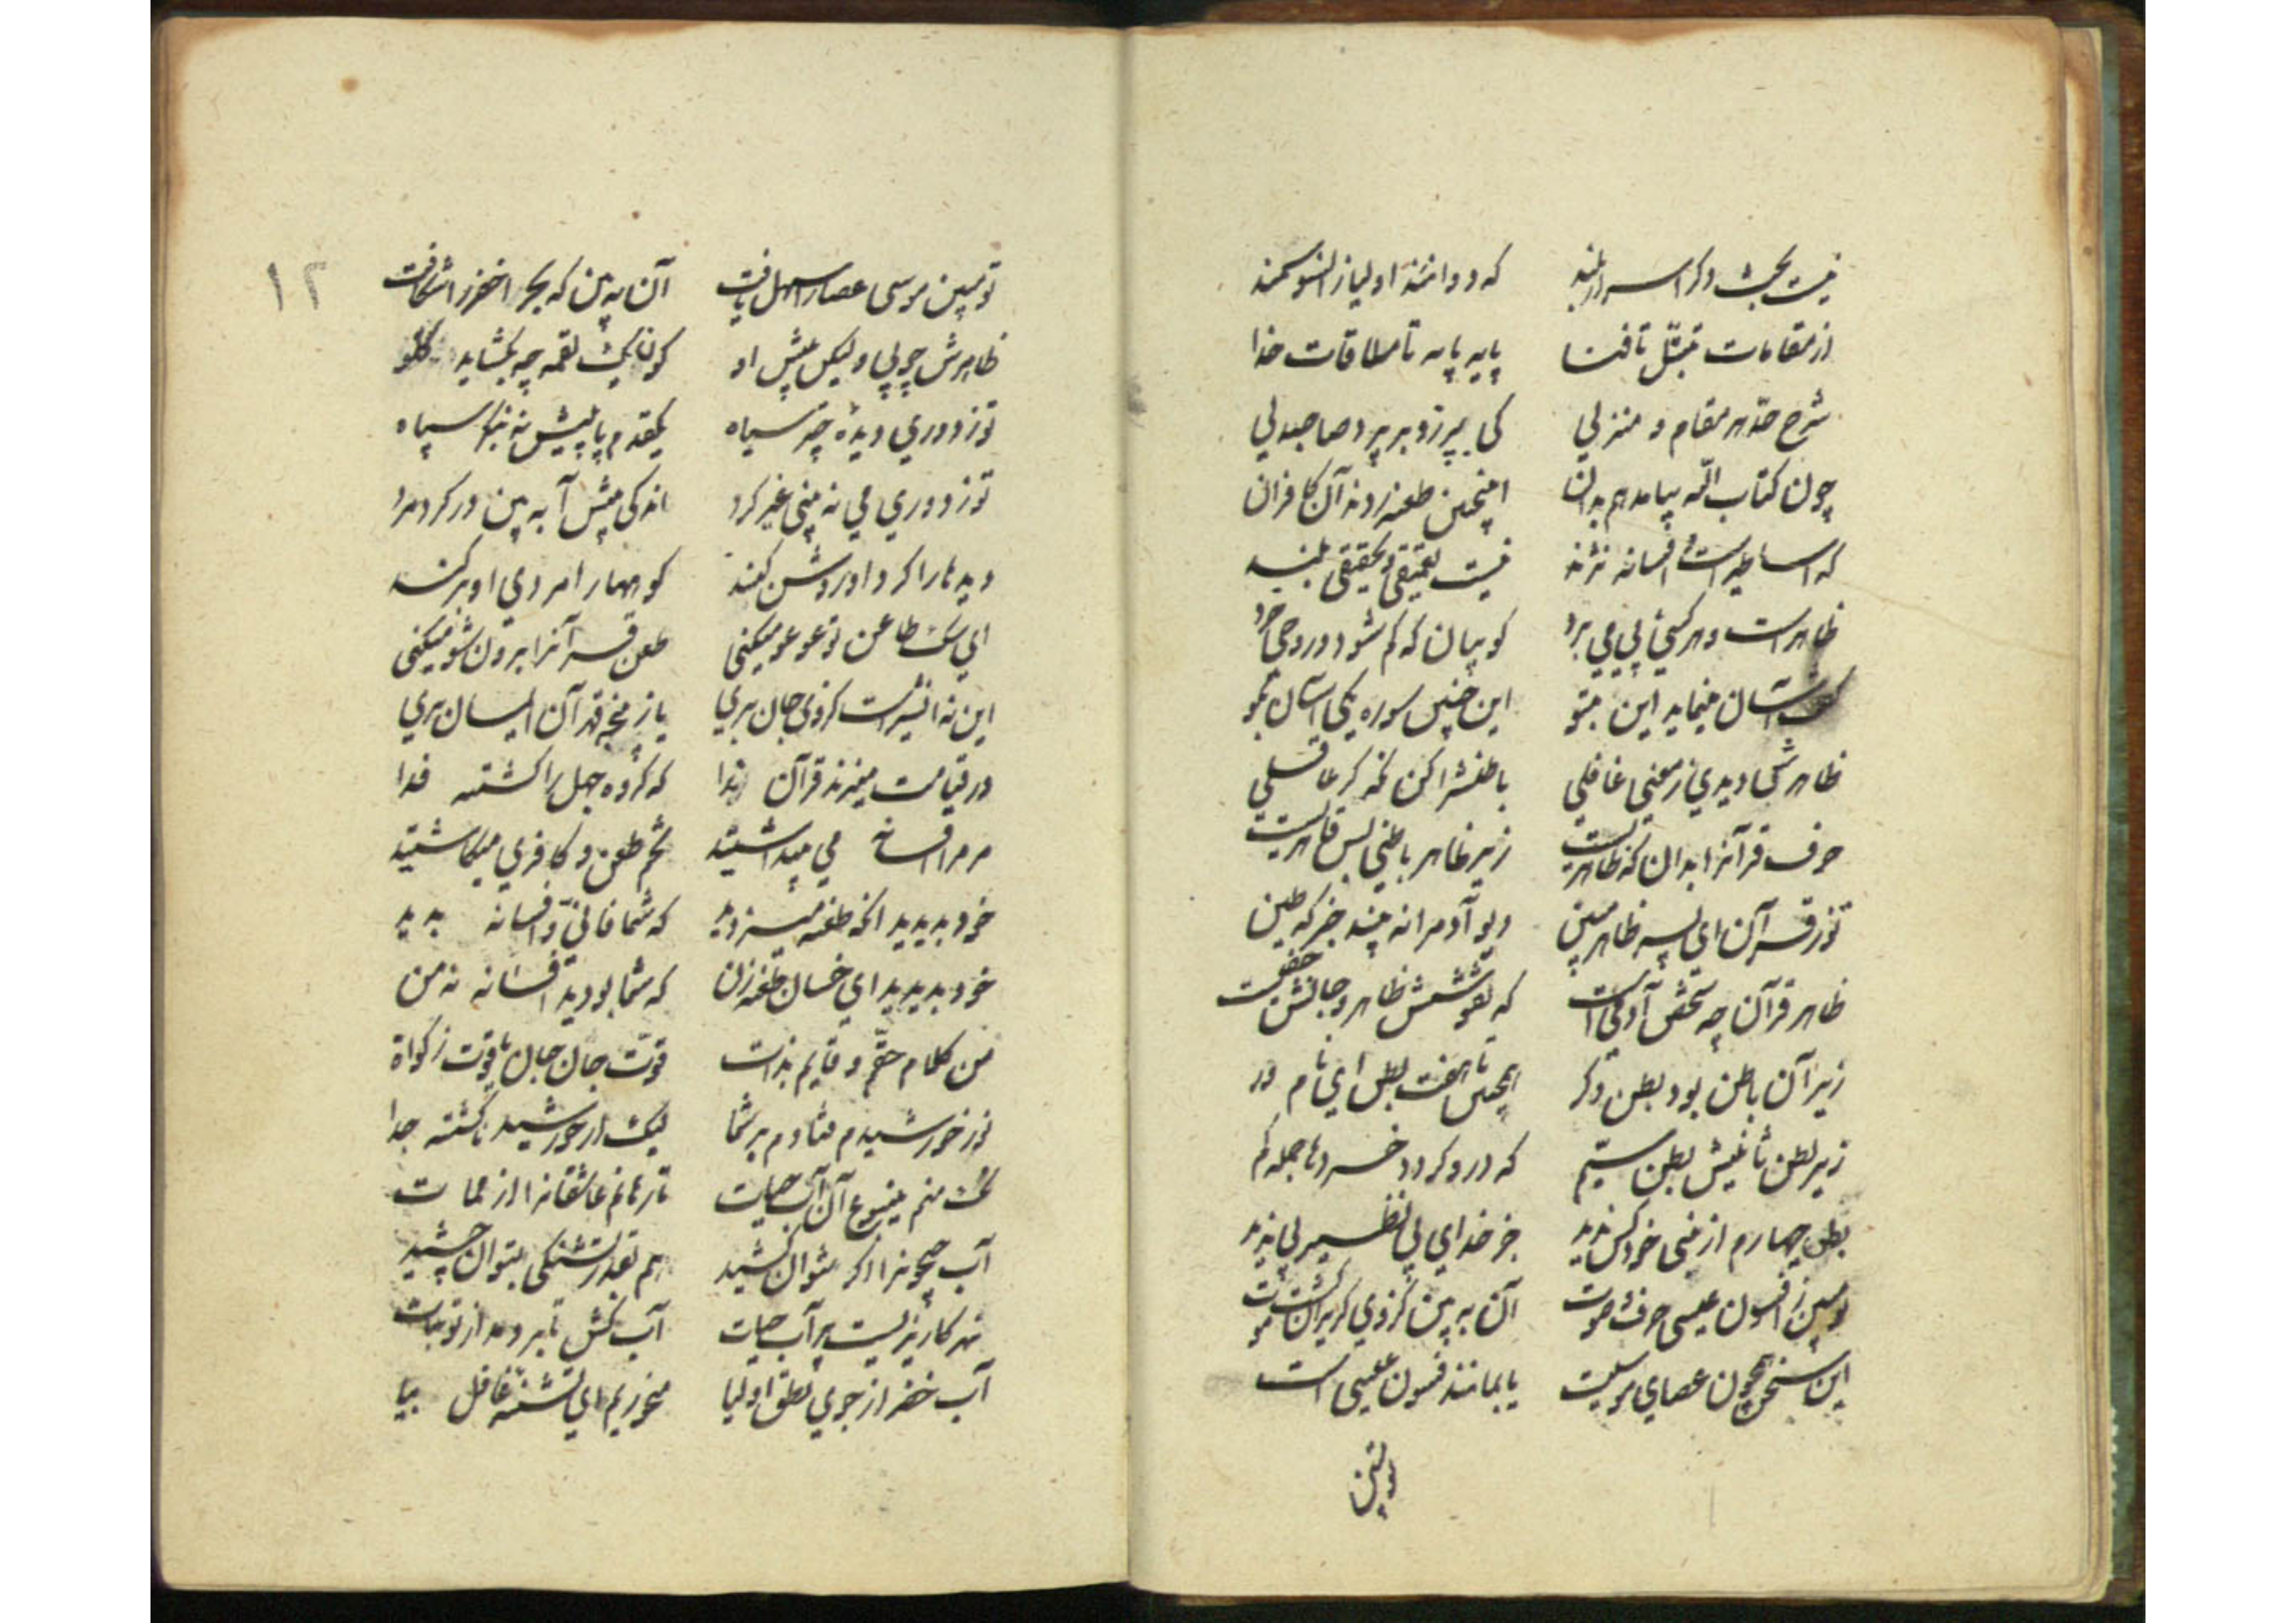 نیست بحث و ذکر اسرار بلند که دوانند اولیا زانسو سمند
از مقامات تبتل تا فنا پایه پایه تا ملاقات خدا
شرح حد هر مقام و منزلی کی بپر زو بر پرد صاحبدلی
چون کتاب الله بیامد هم بدان اینچنین طعنه زدند آن کافران
که اساطیر است و افسانه نژند نیست تعمیقی و تحقیقی بلند
ظاهرست و هر کسی پی می برد کو بیان که کم شود در وی خرد
گفت اگر آسان نماید این بتو این چنین سوره یکی آسان بگو
ظاهرش دیدی ز معنی غافلی باطنش را کن نظر گر عاقلی
حرف قرآنرا بدان که ظاهریست زیر ظاهر باطنی بس قاهریست
تو ز قرآن ای پسر ظاهر مبین دیو آدم را نه بیند جز که طین
ظاهر قرآن چو شخص آدمیست که نقوشش ظاهر و جانش خفیست
زیر آن باطن بود بطن دگر اینچنین تا هفت بطن ای نام ور
زیر بطن ثانیش بطن سیم که درو گردد خردها جمله گم
بطن چهارم از نبی خود کس ندید جز خدای بی نظیر بی ندید
تو مبین ز افسون عیسی حرف و صوت آن به بین کز وی گریزان گشت موت
این سخن همچون عصای موسیست یا بمانند فسون عیسی است
تو مبین
۱۲
تو مبین موسی عصا را سهل یافت آن به بین که بحر اخضر را شکافت
ظاهرش چوبی ولیکن پیش او کون یک لقمه چه بگشاید گلو
تو ز دوری دیدهٔ چتر سیاه یکقدم پا پیش نه بنگر سپاه
تو ز دوری می نه بینی غیر گرد اندکی پیش آ به بین در گرد مرد
دیدها را گرد او روشن کند کوهها را مردی او برکند
ای سگ طاعن تو عوعو میکنی طعن قرآنرا برون شو میکنی
این نه آن شیرست کز وی جان بری یا ز پنجه قهر آن ایمان بری
در قیامت میزند قرآن ندا که گروه جهل را گشته فدا
مر مرا افسانه می پنداشتید تخم طعن و کافری میکاشتید
خود بدیدید آنکه طعنه میزدید که شما فانی و افسانه بدید
خود بدیدید ای خسان طعنه زن که شما بودید افسانه نه من
من کلام حقم و قایم بذات قوت جان جان و یاقوت زکواة
نور خورشیدم فتادم بر شما لیک از خورشید ناگشته جدا
نک منم ینبوع آن آب حیات تا رهانم عاشقانرا از ممات
آب جیحونرا اگر نتوان کشید هم بقدر تشنگی بتوان چشید
نهر کاریزیست پر آب حیات آب کش تا بردمد از تو نبات
آب خضر از جوی نطق اولیا میخوریم ای تشنه غافل بیا